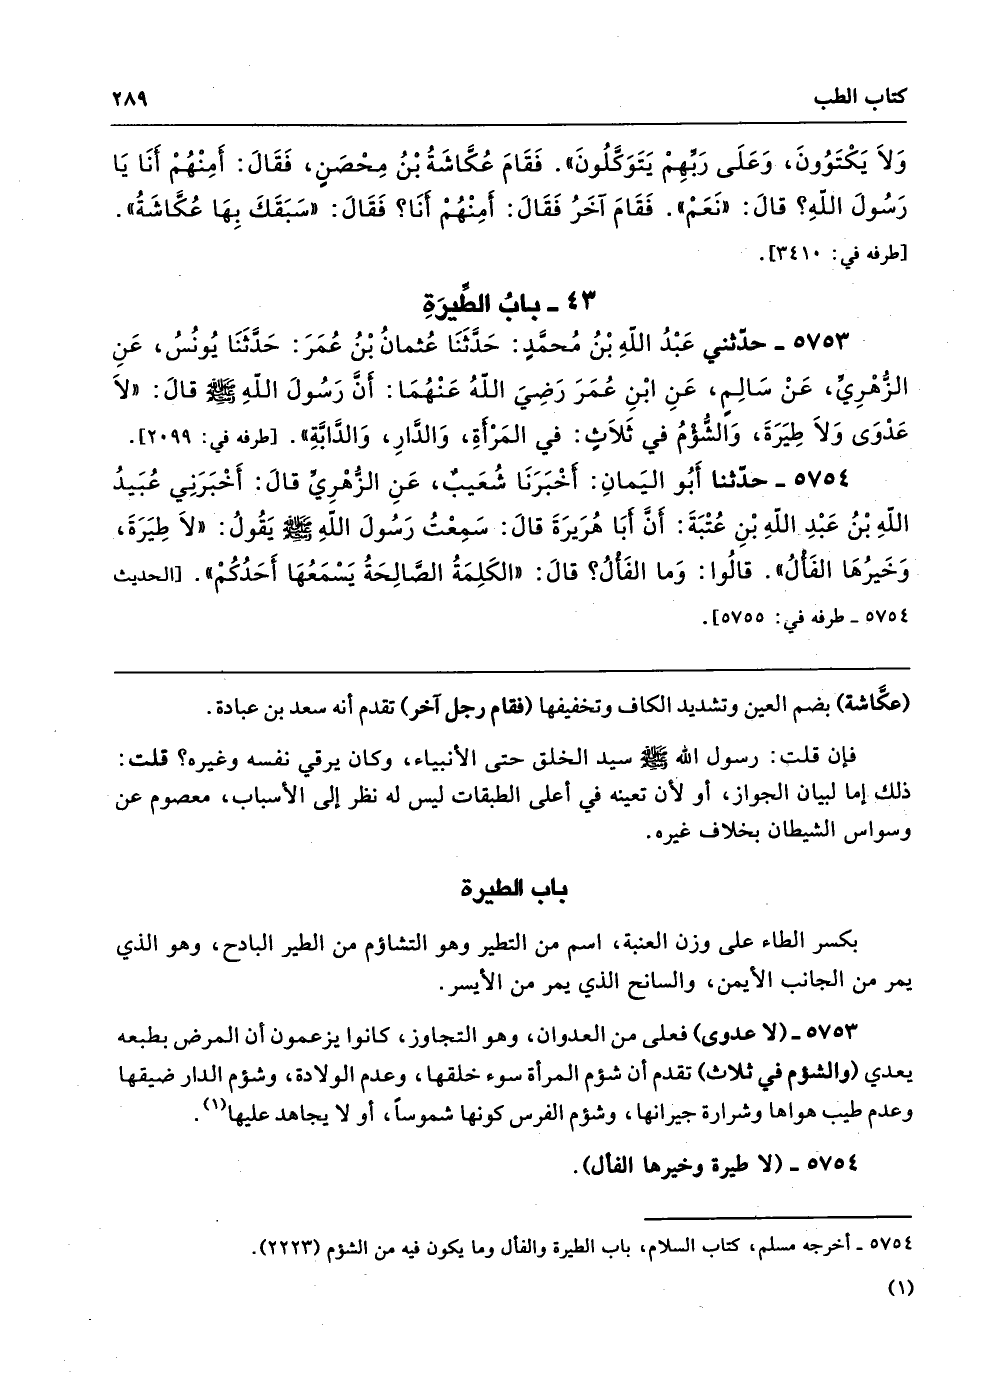 كتاب الطب ٢٨٩
وَلاَ يَكْتَوُونَ، وَعَلَى رَبِّهِمْ يَتَوَكَّلُونَ». فَقَامَ عُكَّاشَةُ بْنُ مِحْصَنٍ، فَقَالَ: أَمِنْهُمْ أَنَا يَا
رَسُولَ اللّهِ؟ قالَ: «نَعَمْ». فَقَامَ آخَرُ فَقَالَ: أَمِنْهُمْ أَنَا؟ فَقَالَ: «سَبَقَكَ بِهَا عُكَّاشَةُ».
[طرفه في: ٣٤١٠].
٤٣ ـ بابُ الطِّيَرَةِ
٥٧٥٣ ـ حدّثني عَبْدُ اللّهِ بْنُ مُحمَّدٍ: حَدَّثَنَا عُثمانُ بْنُ عُمَرَ: حَدَّثَنَا يُونُسُ، عَنِ
الزُّهْرِيِّ، عَنْ سَالِمٍ، عَنِ ابْنِ عُمَرَ رَضِيَ اللّهُ عَنْهُمَا: أَنَّ رَسُولَ اللّهِ ﷺ قالَ: «لاَ
عَدْوَى وَلاَ طِيَرَةَ، وَالشُّؤْمُ في ثَلاَثٍ: في المَرْأَةِ، وَالدَّارِ، وَالدَّابَّةِ». [طرفه في: ٢٠٩٩].
٥٧٥٤ ـ حدّثنا أَبُو اليَمانِ: أَخْبَرَنَا شُعَيبٌ، عَنِ الزُّهْرِيِّ قالَ: أَخْبَرَنِي عُبَيدُ
اللّهِ بْنُ عَبْدِ اللّهِ بْنِ عُتْبَةَ: أَنَّ أَبَا هُرَيرَةَ قالَ: سَمِعْتُ رَسُولَ اللّهِ ﷺ يَقُولُ: «لاَ طِيَرَةَ،
وَخَيرُهَا الفَأْلُ». قالُوا: وَما الفَأْلُ؟ قالَ: «الكَلِمَةُ الصَّالِحَةُ يَسْمَعُهَا أَحَدُكُمْ». [الحديث
٥٧٥٤ ـ طرفه في: ٥٧٥٥].
(عكَّاشة) بضم العين وتشديد الكاف وتخفيفها (فقام رجل آخر) تقدم أنه سعد بن عبادة.
فإن قلت: رسول الله ﷺ سيد الخلق حتى الأنبياء، وكان يرقي نفسه وغيره؟ قلت:
ذلك إما لبيان الجواز، أو لأن تعينه في أعلى الطبقات ليس له نظر إلى الأسباب، معصوم عن
وسواس الشيطان بخلاف غيره.
باب الطيرة
بكسر الطاء على وزن العنبة، اسم من التطير وهو التشاؤم من الطير البادح، وهو الذي
يمر من الجانب الأيمن، والسانح الذي يمر من الأيسر.
٥٧٥٣ ـ (لا عدوى) فعلى من العدوان، وهو التجاوز، كانوا يزعمون أن المرض بطبعه
يعدي (والشؤم في ثلاث) تقدم أن شؤم المرأة سوء خلقها، وعدم الولادة، وشؤم الدار ضيقها
وعدم طيب هواها وشرارة جيرانها، وشؤم الفرس كونها شموساً، أو لا يجاهد عليها(١).
٥٧٥٤ ـ (لا طيرة وخيرها الفأل).
٥٧٥٤ ـ أخرجه مسلم، كتاب السلام، باب الطيرة والفأل وما يكون فيه من الشؤم (٢٢٢٣).
(١)